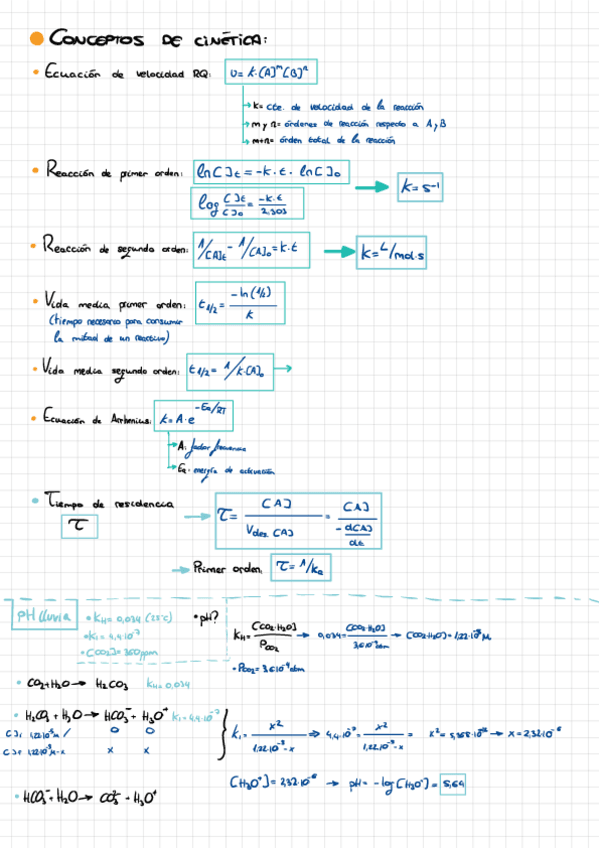 CONCEPTOS DE CINÉTICA:
Ecuación de velocidad RQ: v= k·[A]ᵐ[B]ⁿ
k= cte. de velocidad de la reacción
m y n= órdenes de reacción respecto a A y B
m+n= órden total de la reacción
Reacción de primer orden: ln[ ]t = -k·t· ln[ ]₀ → k= s⁻¹
log [ ]t/[ ]₀ = -k·t/2,303
Reacción de segundo orden: 1/[A]t - 1/[A]₀ = k·t → k= L/mol·s
Vida media primer orden: t1/2 = -ln(1/2)/k
(tiempo necesario para consumir
la mitad de un reactivo)
Vida media segundo orden: t1/2 = 1/k·[A]₀ →
Ecuación de Arrhenius: k= A·e^-Ea/RT
A: factor frecuencia
Ea: energía de activación
Tiempo de residencia → τ = [A]/Vdes. [A] = [A]/-d[A]/dt
τ
→ Primer orden: τ = 1/ka
pH lluvia
• KH= 0,034 (25°C)
• K1= 4,4·10⁻⁷
• [CO2]= 360ppm
• pH?
KH= [CO2·H2O]/PCO2 → 0,034= [CO2·H2O]/3,6·10⁻⁴atm → [CO2·H2O]= 1,22·10⁻⁵M
• PCO2= 3,6·10⁻⁴atm
• CO2+H2O → H2CO3 KH=0,034
• H2CO3 + H2O → HCO3⁻ + H3O⁺ K1=4,4·10⁻⁷
1,22·10⁻⁵M / 0 0
1,22·10⁻⁵-x x x
K1= x²/1,22·10⁻⁵-x ⇒ 4,4·10⁻⁷= x²/1,22·10⁻⁵-x = x²= 5,368·10⁻¹² → x= 2,32·10⁻⁶
[H3O⁺]= 2,32·10⁻⁶ → pH= -log[H3O⁺]= 5,64
• HCO3⁻ + H2O → CO3²⁻ + H3O⁺